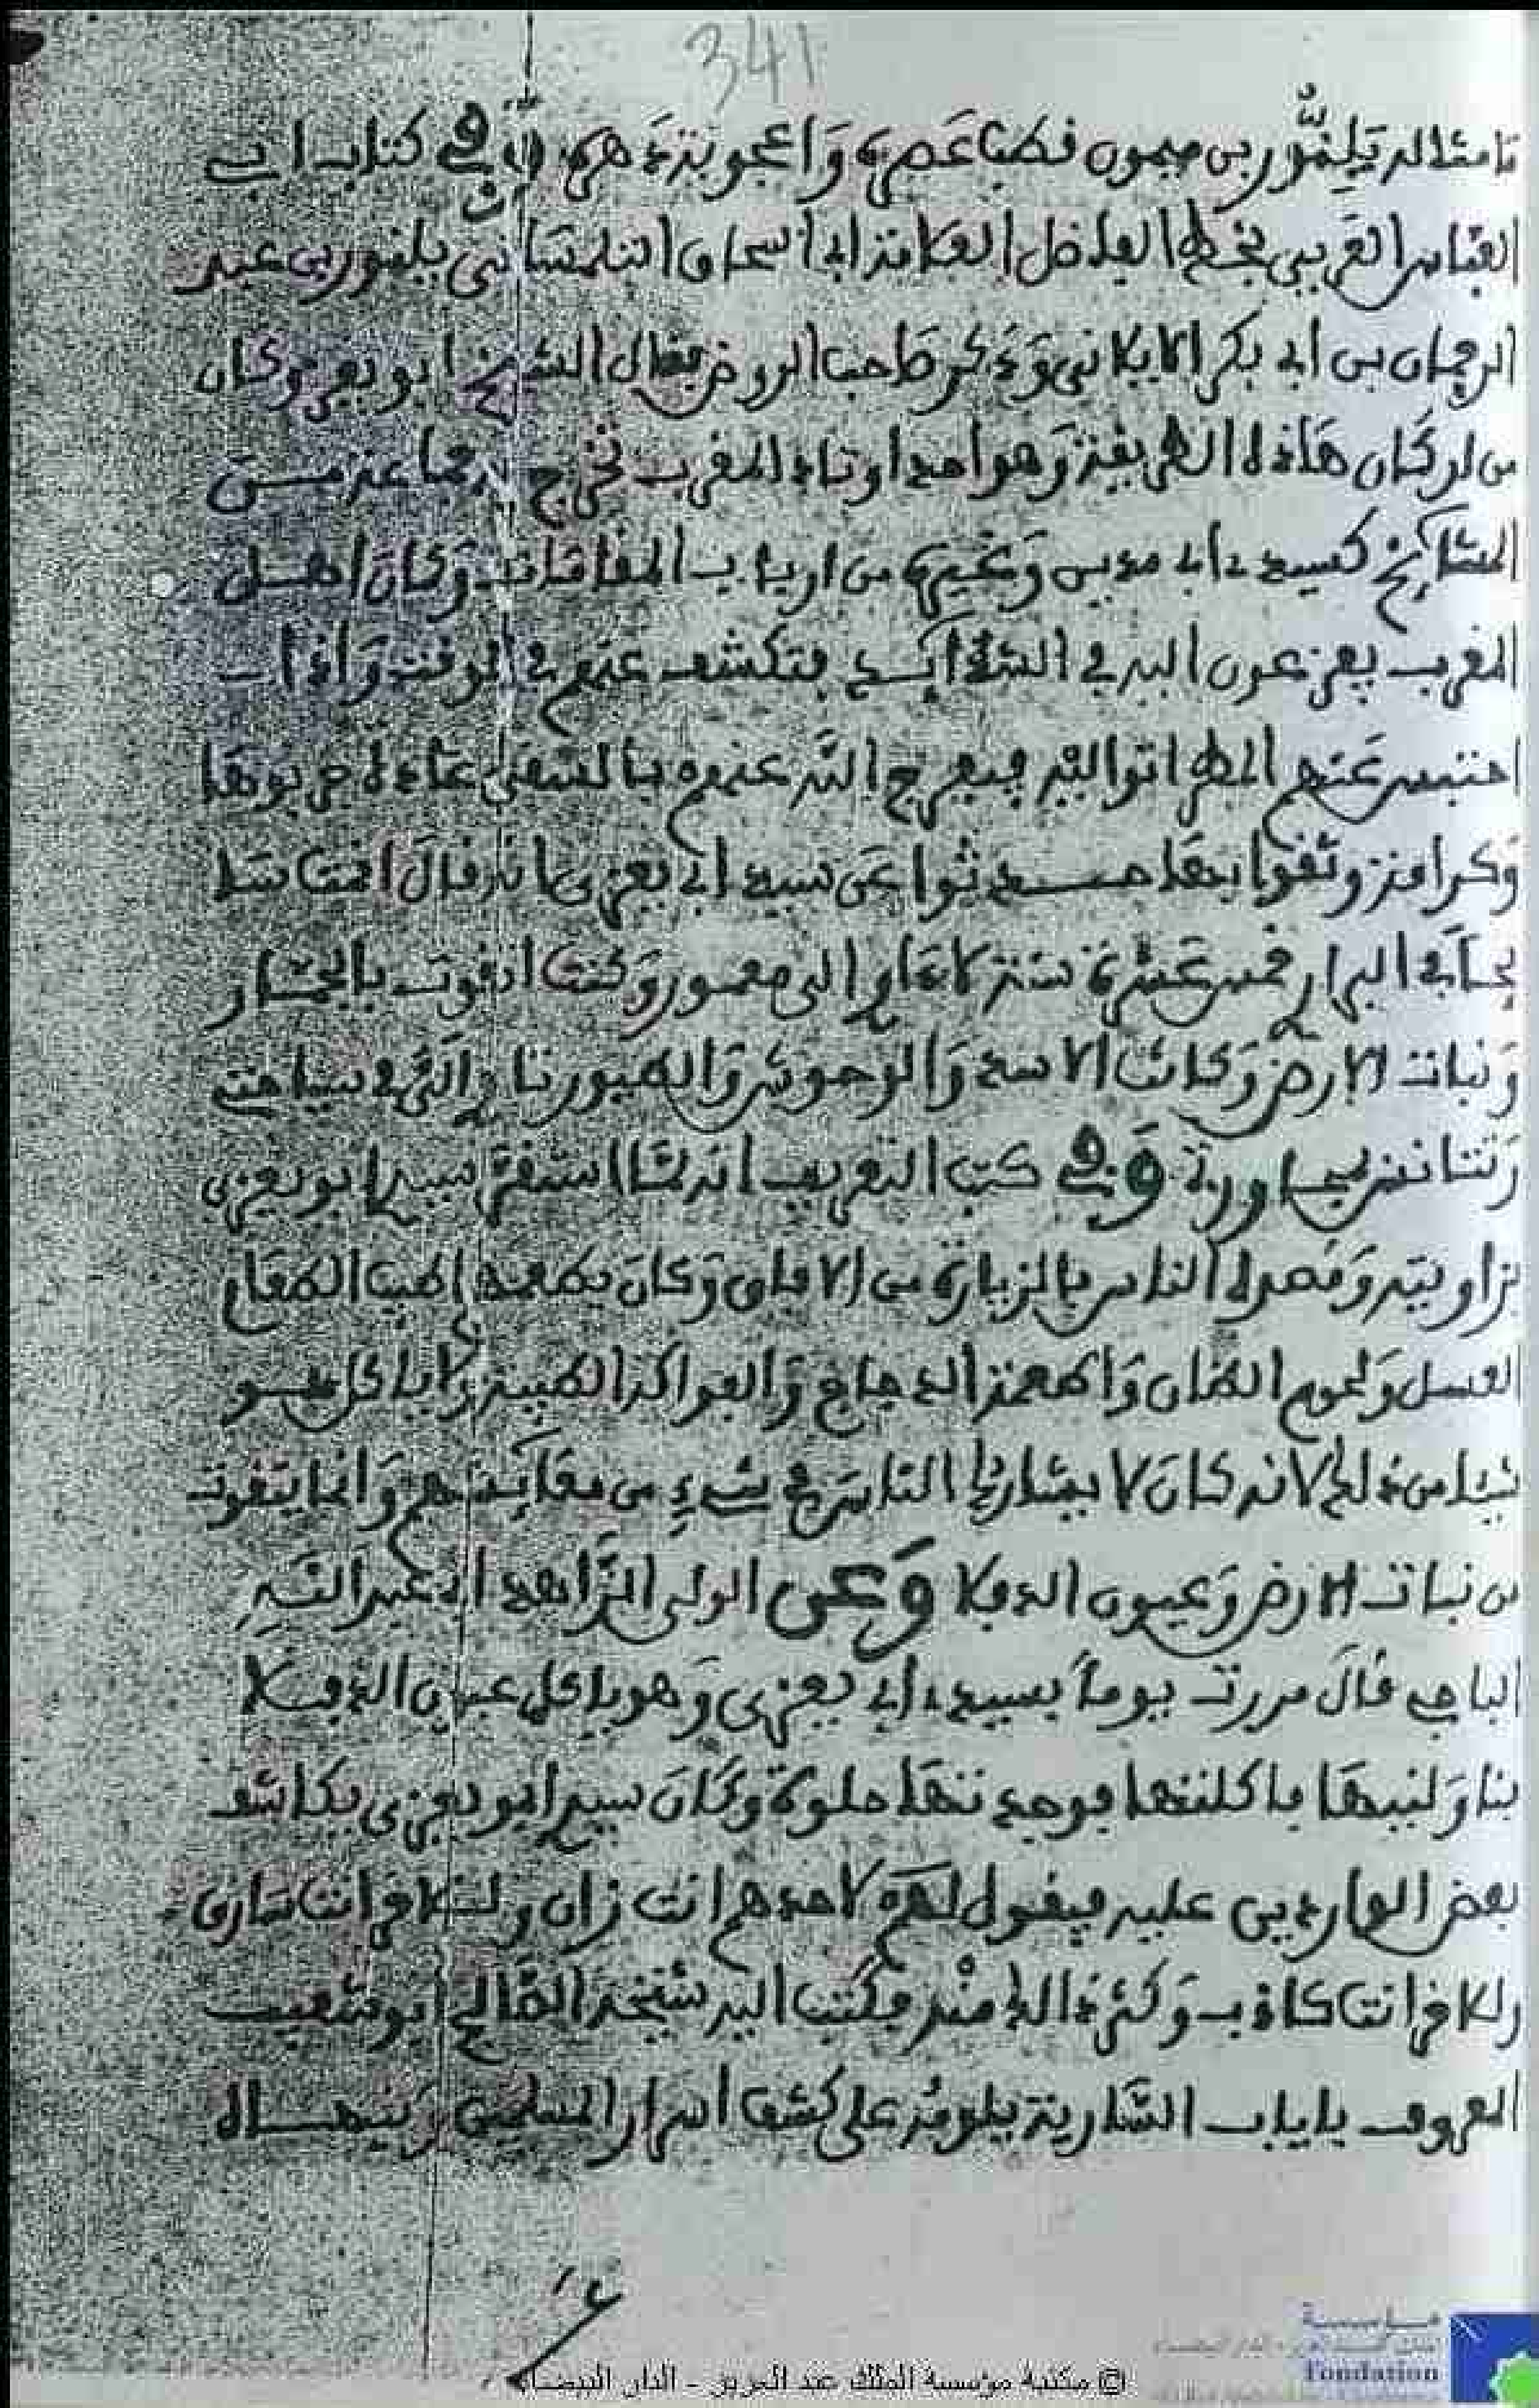 341
يلنور بن ميمون قطب عصره وأعجوبة دهره وفي كتاب ابي
العباس العزفي بخط الفاضل العلامة ابي اسحاق التلمساني يلنور بن عبد
الرحمان بن ابي بكر الايلاني وذكر صاحب الروض فقال الشيخ ابو يعزى كان
من اركان هاذه الطريقة وهو احد اوتاد المغرب تخرج به جماعة مــن
المشايخ كسيدي ابي مدين وغيره من ارباب المقامات وكان اهــل
المغرب يفزعون اليه في الشدائد فتكشف عنهم في الوقت واذا
احتبس عنهم المطر اتوا اليه فيفرج الله عنهم بالسقي عادة جربوها
وكرامة وثقوا بها حــدثوا عن سيدي ابي يعزى انه قال اقمت
في البراري خمس عشرة سنة لا ءاوي الى معمور وكنت اتقوت بالخبــاز
ونبات الارض وكانت الاسد والوحوش والطيور تاوي الي في سياحتي
وتتانس بمجاورتي وفي كتب التعريف انه لما استقر سيدي ابو يعزى
بزاويته وقصده الناس بالزيارة من الافاق وكان يطعمهم اطيب الطعام
العسل ولحوم الضان واطعمة الدجاج والفواكه الطيبة ولا ياكل هــو
شيئا من ذلك لانه كان لا يشارك الناس في شيء من معايشهم وانما يتقوت
من نبات الارض وعيون الدفلا وعن الولي الزاهد ابي عبد الله
الباجي قال مررت يوما بسيدي ابي يعزى وهو ياكل عيون الدفــلا
فناولنيها فاكلتها فوجدتها حلوة وكان سيدي ابو يعزى يكاشف
بعض الواردين عليه فيقول لاحدهم انت زان ولئلاخر انت سارق
ولئلاخر انت كاذب وكثر ذالك منه فكتب اليه شيخه الصالح ابو شعيب
المعروف بايلاب السارية يلومه على كشف اسرار المسلمين وينهــاه
© مكتبة مؤسسة الملك عبد العزيز - الدار البيضاء
مؤسسة
Fondation